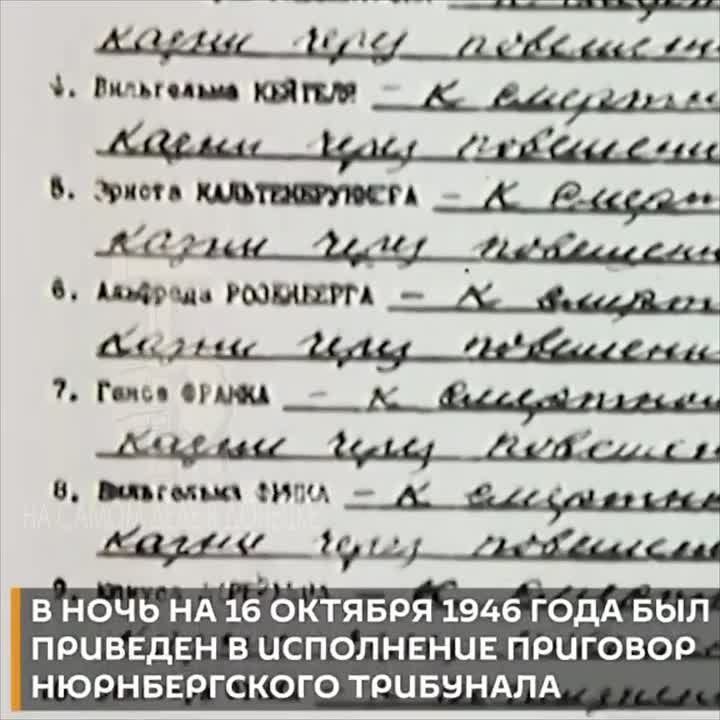 казни через повешени
4. Вильгельма КЕЙТЕЛЯ – к смертно
казни через повешени
5. Эрнста КАЛЬТЕНБРУННЕРА – к смерт
казни через повешени
6. Альфреда РОЗЕНБЕРГА – к смерт
казни через повешени
7. Ганса ФРАНКА – к смертной
казни через повешен
8. Вильгельма ФРИКА – к смертно
НА САМОМ ДЕЛЕ В ДОНЕЦКЕ
казни через повешени
9.
В НОЧЬ НА 16 ОКТЯБРЯ 1946 ГОДА БЫЛ
ПРИВЕДЕН В ИСПОЛНЕНИЕ ПРИГОВОР
НЮРНБЕРГСКОГО ТРИБУНАЛА